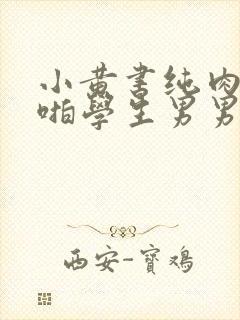 小黄书纯肉
啪學生男男
西安-寶鸡